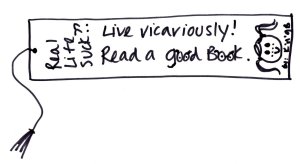 Real
Life
Sucks?
Live vicariously!
Read a good Book.